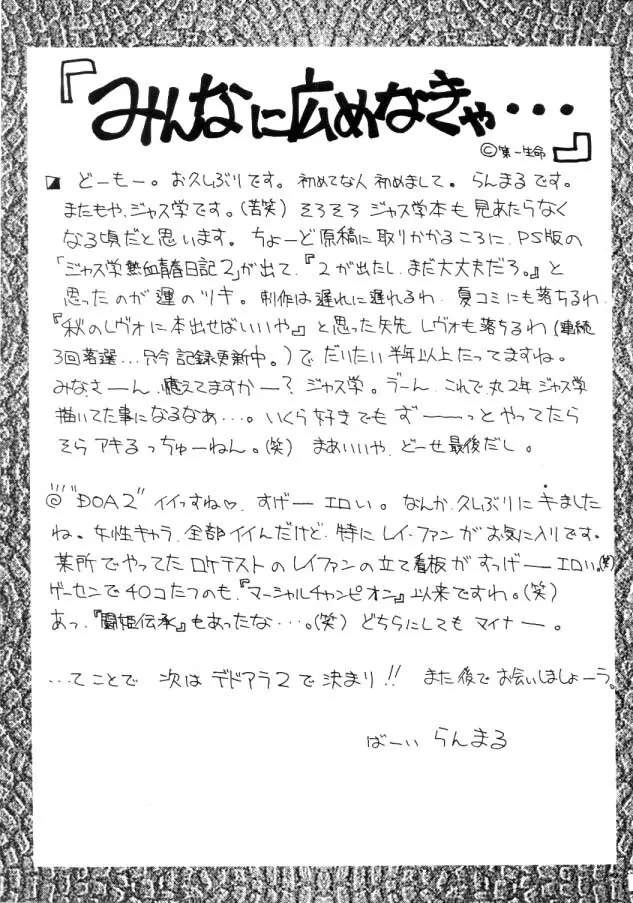 『みんなに広めなきゃ・・・』
©第一生命
どーもー。お久しぶりです。初めてな人初めまして。らんまるです。
またもや、ジャス学です。(苦笑)そろそろジャス学本も見あたらなく
なる頃だと思います。ちょーど原稿に取りかかるころに、PS版の
「ジャス学熱血青春日記2」が出て、『2が出たし、まだ大丈夫だろ。』と
思ったのが運のツキ。制作は遅れに遅れるわ、夏コミにも落ちるわ、
『秋のレヴォに本出せばいいや』と思った矢先レヴォも落ちるわ(連続
3回落選…只今記録更新中。)でだいたい半年以上たってますね。
みなさーん、燃えてますかー?ジャス学。うーん、これで、丸2年ジャス学
描いてた事になるなあ…。いくら好きでもずーーーっとやってたら
そらアキるっちゅーねん。(笑)まあいいや、どーせ最後だし。
@"DOA2"イイっすね♡。すげーエロい。なんか、久しぶりにキました
ね。女性キャラ、全部イイんだけど、特にレイ・ファンがお気に入りです。
某所でやってたロケテストのレイファンの立て看板がすっげーエロい。(笑)
ゲーセンで40コたつのも、『マーシャルチャンピオン』以来ですわ。(笑)
あっ、『闘姫伝承』もあったな・・・。(笑)どちらにしてもマイナー。
…てことで 次はデドアラ2で決まり!! また後でお会いしましょーう。
ばーい らんまる